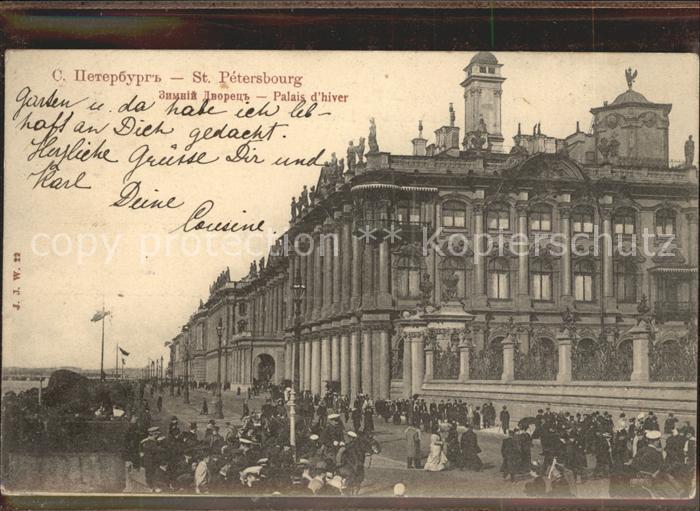 С. Петербургъ — St. Pétersbourg
Зимній Дворецъ — Palais d'hiver
Garten u. da habe ich leb-
haft an Dich gedacht.
Herzliche Grüsse Dir und
Karl
Deine
Cousine
copy protection *** copy protection
J. J. W. 22